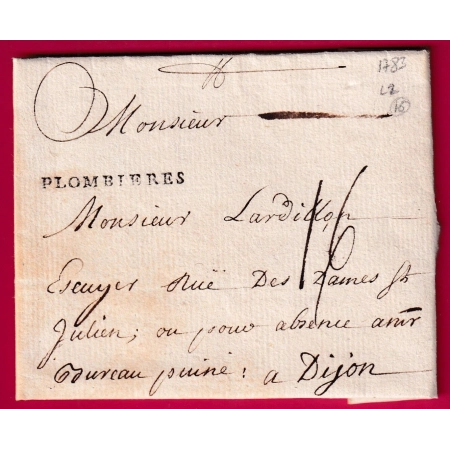 1783
L2
16
Monsieur
PLOMBIERES
Monsieur Lardillon
16
Escuyer Ruë Des Dames St
Julien; ou pour absence a mr
Bureau puiné: a Dijon